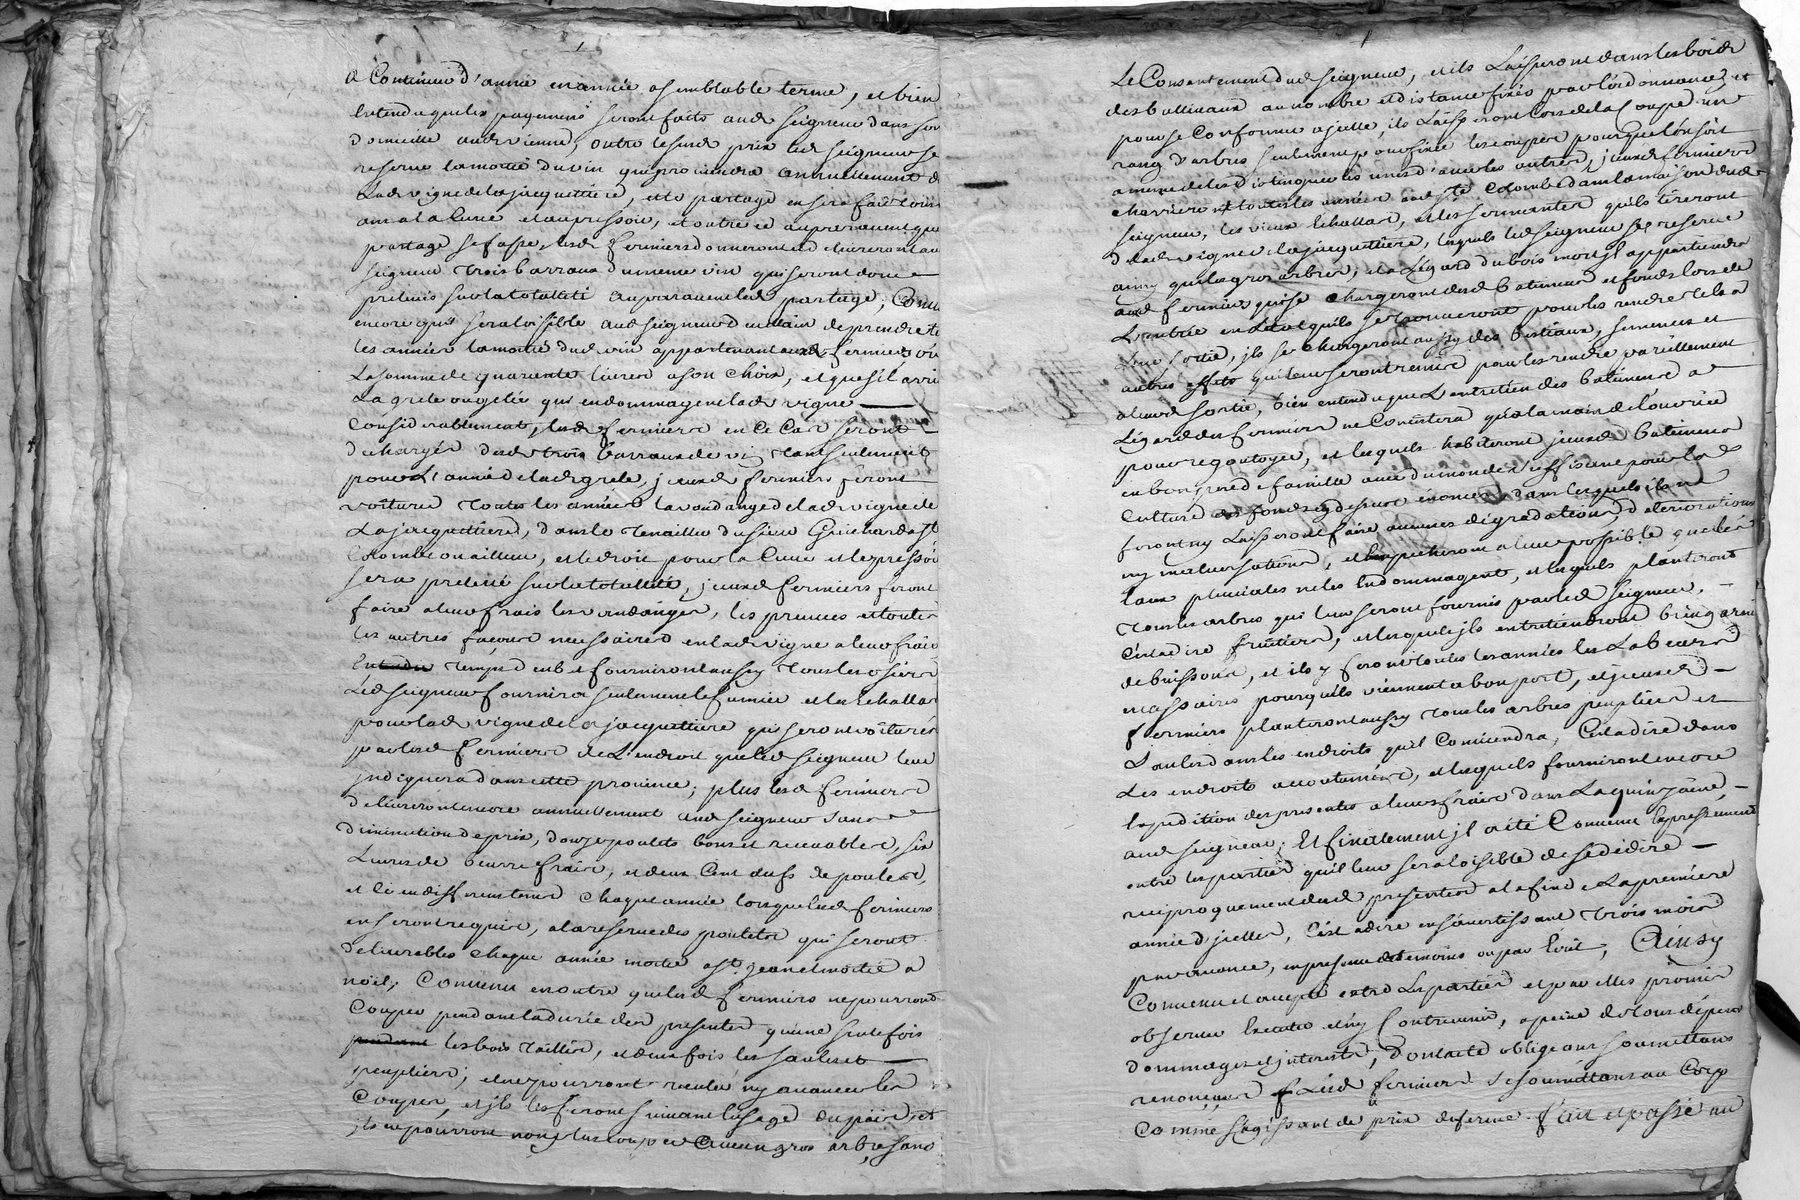 a Continuer d'année en année a semblable terme, et bien
Entendu que les payemens seront faits aud seigneur dans son
domicille aud vienne, outre lesusd prix led seigneur se
reserve la moitié du vin qui proviendra annuellement de
Lad vigne de la jacquettiere, et le partage en sera fait tous
ans a la Cuve et au pressoir, et outre ce auparavant que
partage se fasse, lesd fermiers donneront et delivreront au
seigneur trois barraux du meme vin qui seront donc
prelevés sur la totallité auparavant led partage; Convenu
encore qu'il sera loisible aud seigneur de prendre
les années la moitié dud vin appartenant auxd fermiers ou
La somme de quarente livres a son choix, et que s'il arrive
La grele ou gelée qui endommagent lad vigne
Considerablement, lesd fermiers en ce Cas seront
dechargés desd trois barraux de vin tant seulement
pour L'année de lad grele, jceuxd fermiers feront
voiturer toutes les années la vandange de lad vigne de
La jacquettiere, dans le tenailler du sieur Guichard a Ste
Colombe ou ailleur, et le droit pour la Cuve et le pressoir
sera prelevé sur la totallité, jceuxd fermiers feront
faire a leur frais les vandanges, les preuves et toutes
les autres façons necessaires en lad vigne a leur frais
temps deub et fourniront aussy tous les osiers
Led seigneur fournira seulement le fumier et les Echallas
pour lad vigne de la jacquettiere qui seront voiturés
par lesd fermiers de L'endroit que led seigneur leur
jndiquera dans cette province; plus lesd fermiers
delivreront encore annuellement aud seigneur sans
diminution de prix, douze poulets bons et recevables, six
Livres de beurre frais, et deux Cent œufs de poules,
et ce en differens tems chaque année lorsque lesd fermiers
en seront requis, a la reserve des poulets qui seront
delivrables chaque année moitié a St jean et moitié a
noël; Convenu en outre que lesd fermiers ne pourront
Couper pendant la durée des presentes qu'une seule fois
les bois taillis, et deux fois les saules et
peupliers; et ne pourront reculer ny avancer les
Coupes, et jls les feront suivant l'usage du païs, et
jls ne pourront non plus couper aucun gros arbre sans
Le Consentement dud seigneur, et ils Laisseront dans les bois
des balliveaux au nombre et distance fixés par l'ordonnance, et
pour se Conformer a jcelle, ils Laisseront lors de la Coupe un
rang d'arbres seulement pour fixer les coupes pour que l'on soit
a meme de les distinguer les unes d'avec les autres, jceuxd fermiers
charrieront toutes les années aud Ste Colombe dans la maison dud
seigneur, les vieux Echallas, et les sermentes qu'ils tireront
de lad vigne de la jacquettiere, lesquels led seigneur se reserve
ainsy que les gros arbres, et a L'égard du bois mort jl appartiendra
aud fermiers qui se chargeront desd batimens et fonds lors de
L'entrée en L'état qu'ils se trouveront pour les rendre tels a
Leur sortie, jls se chargeront aussy des bestiaux, semences et
autres effets qui leur seront remis pour les rendre pareillement
a leurd sortie, bien entendu que L'entretien des batimens a
L'égard des fermiers ne Consistera qu'a la main de l'ouvrier
pour regoutoyer, et lesquels habiteront jceuxd batimens
en bon pere de famille avec du monde suffisant pour la
Culture des fonds cy dessus enoncés dans lesquels ils ne
feront ny Laisseront faire aucunes dégradations, deteriorations
ny malversations, et Empecheront a leur possible que les
Eaux pluviales ne les Endommagent, et lesquels planteront
tous les arbres qui leur seront fournis par led seigneur,
C'est a dire fruitiers, et lesquels jls entretiendront bien garni
de buissons, et ils y feront toutes les années les Labeurs
necessaires pour qu'ils viennent a bon port, et jceuxd
fermiers planteront aussy tous les arbres peupliers et
Saules dans les endroits qu'il Conviendra, C'est a dire dans
Les endroits accoutumés, et lesquels fourniront encore
Expedition des presentes a leurs frais dans La quinzaine
aud seigneur; Et finallement jl a été Convenu Expressement
entre les parties qu'il leur sera loisible de se dédire
reciproquement desd presentes a la fin de La premiere
année d'jcelles, C'est a dire en s'avertissant trois mois
par avance, en presence de temoins ou par Ecrit; Ainsy
Convenu et accepté entre Les parties et par elles promis
observer Executer et n'y Contrevenir, a peine de tous dépens
dommages et interets, dont acte obligeans soumettans
renonçans Lesd fermiers se soumettans au Corp
Comme s'agissant de prix de ferme. Fait et passé au